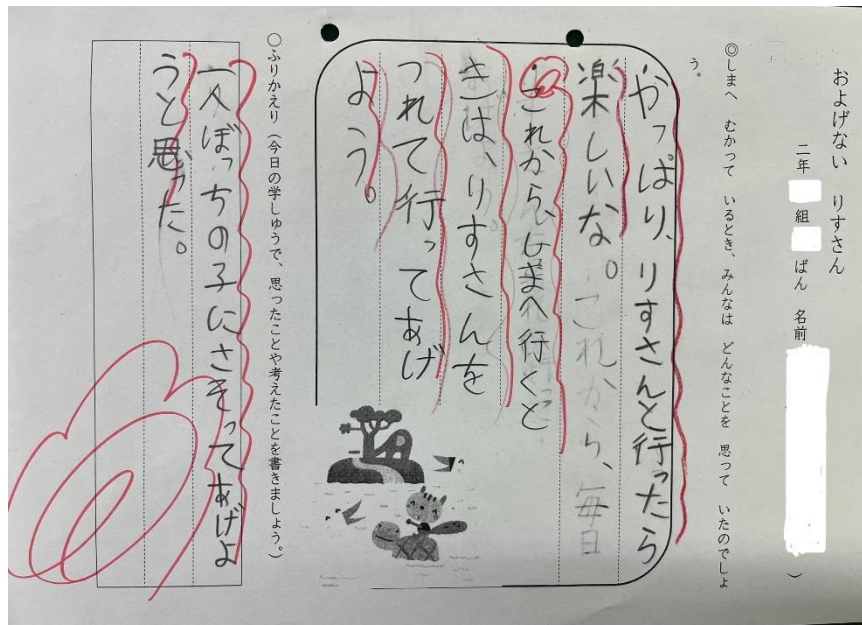 およげない りすさん
二年 組 ばん 名前 )
◎しまへ むかって いるとき、みんなは どんなことを 思って いたのでしょ
う。
やっぱり、りすさんと行ったら
楽しいな。これから、毎日
これから、しまへ行くと
きは、りすさんを
つれて行ってあげ
よう。
○ふりかえり(今日の学しゅうで、思ったことや考えたことを書きましょう。)
一人ぼっちの子にさそってあげよ
うと思った。